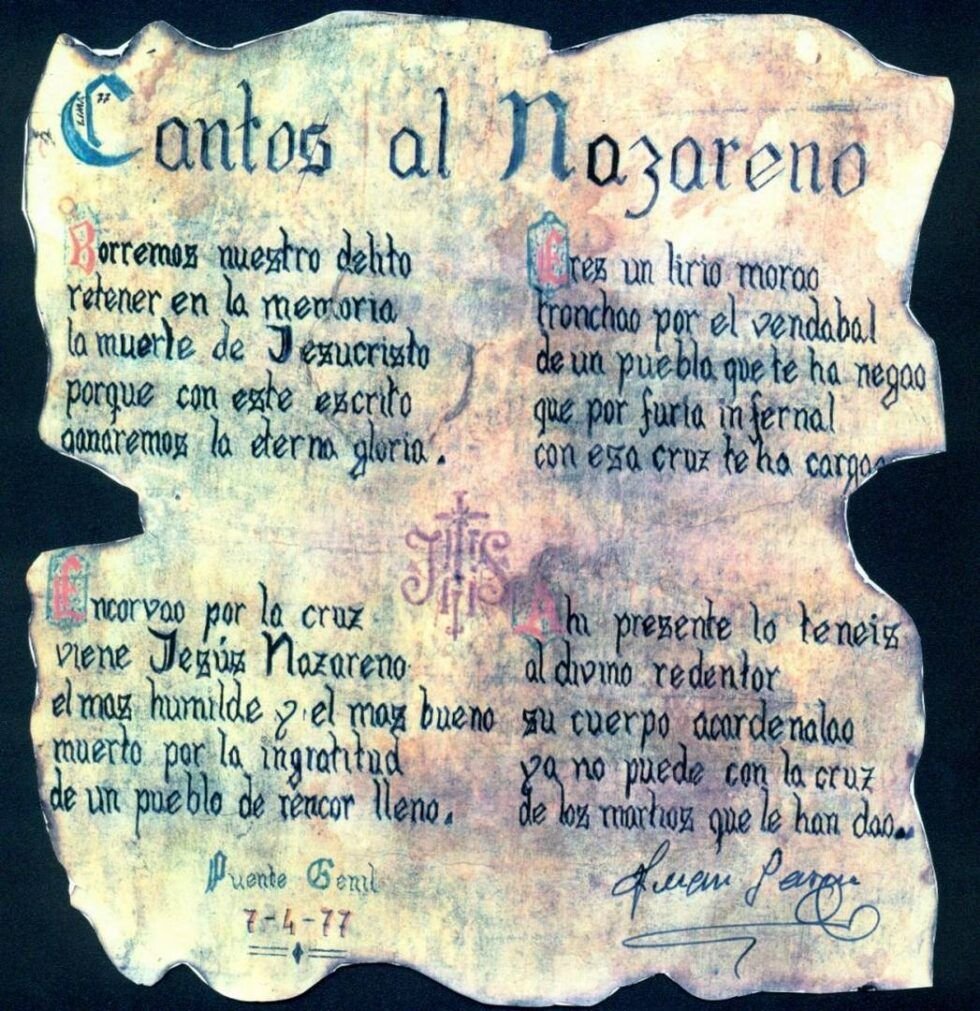 Cantos al Nazareno
Borremos nuestro delito
retener en la memoria
la muerte de Jesucristo
porque con este escrito
ganaremos la eterna gloria.
Eres un lirio morao
tronchao por el vendabal
de un pueblo que te ha negao
que por furia infernal
con esa cruz te ha cargao
JHS
Encorvao por la cruz
viene Jesús Nazareno
el mas humilde y el mas bueno
muerto por la ingratitud
de un pueblo de rencor lleno.
Ahi presente lo teneis
al divino redentor
su cuerpo acardenalao
ya no puede con la cruz
de los martios que le han dao..
Puente Genil
7-4-77
Juan